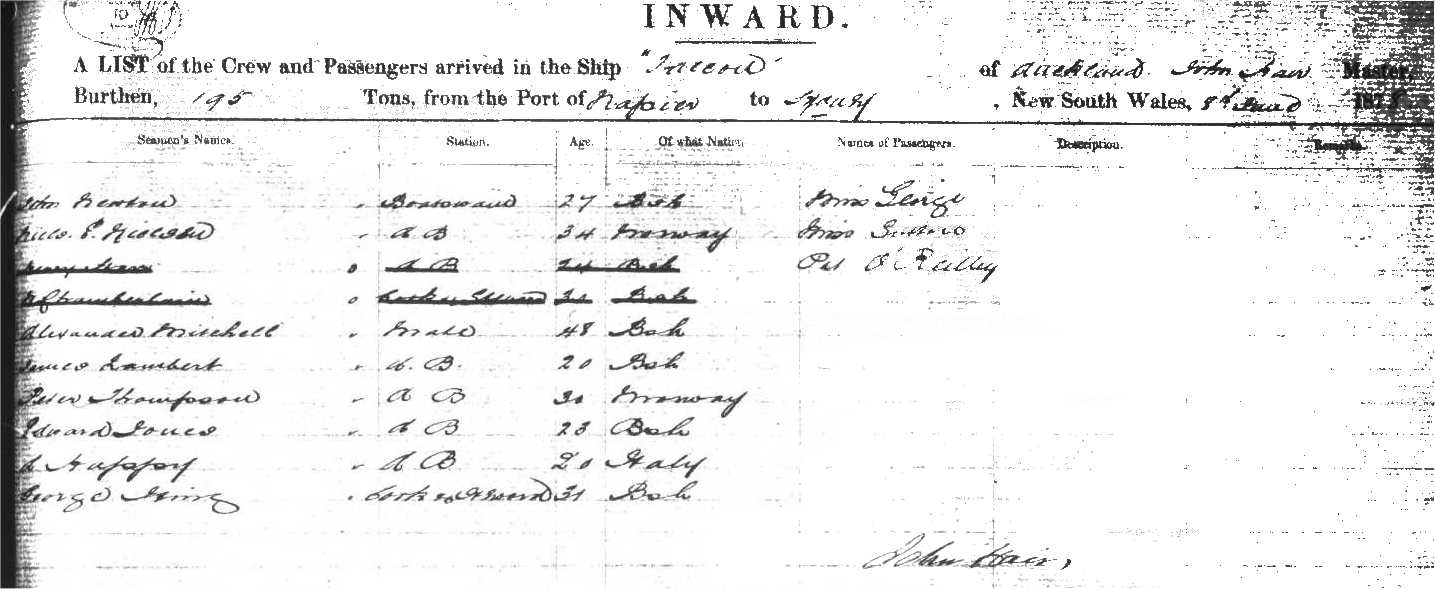 INWARD.
A LIST of the Crew and Passengers arrived in the Ship "Falcon" of Auckland John Hair Master,
Burthen, 195 Tons, from the Port of Napier to Sydney, New South Wales, 8th 187
Seamen's Names. Station. Age. Of what Nation. Names of Passengers. Description. Remarks.
John Newton " Boatswain 27 Bsh Miss George
E. Nielsen " A B 34 Norway Miss
o A B 24 Bsh Pat O'Reilly
Chamberlain o Cook & Steward Bsh
Alexander Mitchell " Mate 48 Bsh
James Lambert " A. B. 20 Bsh
Peter Thompson " A B 30 Norway
Edward Jones " A B 23 Bsh
A Happy " A B 20 Italy
George King " Cook & Steward 31 Bsh
John Hair,